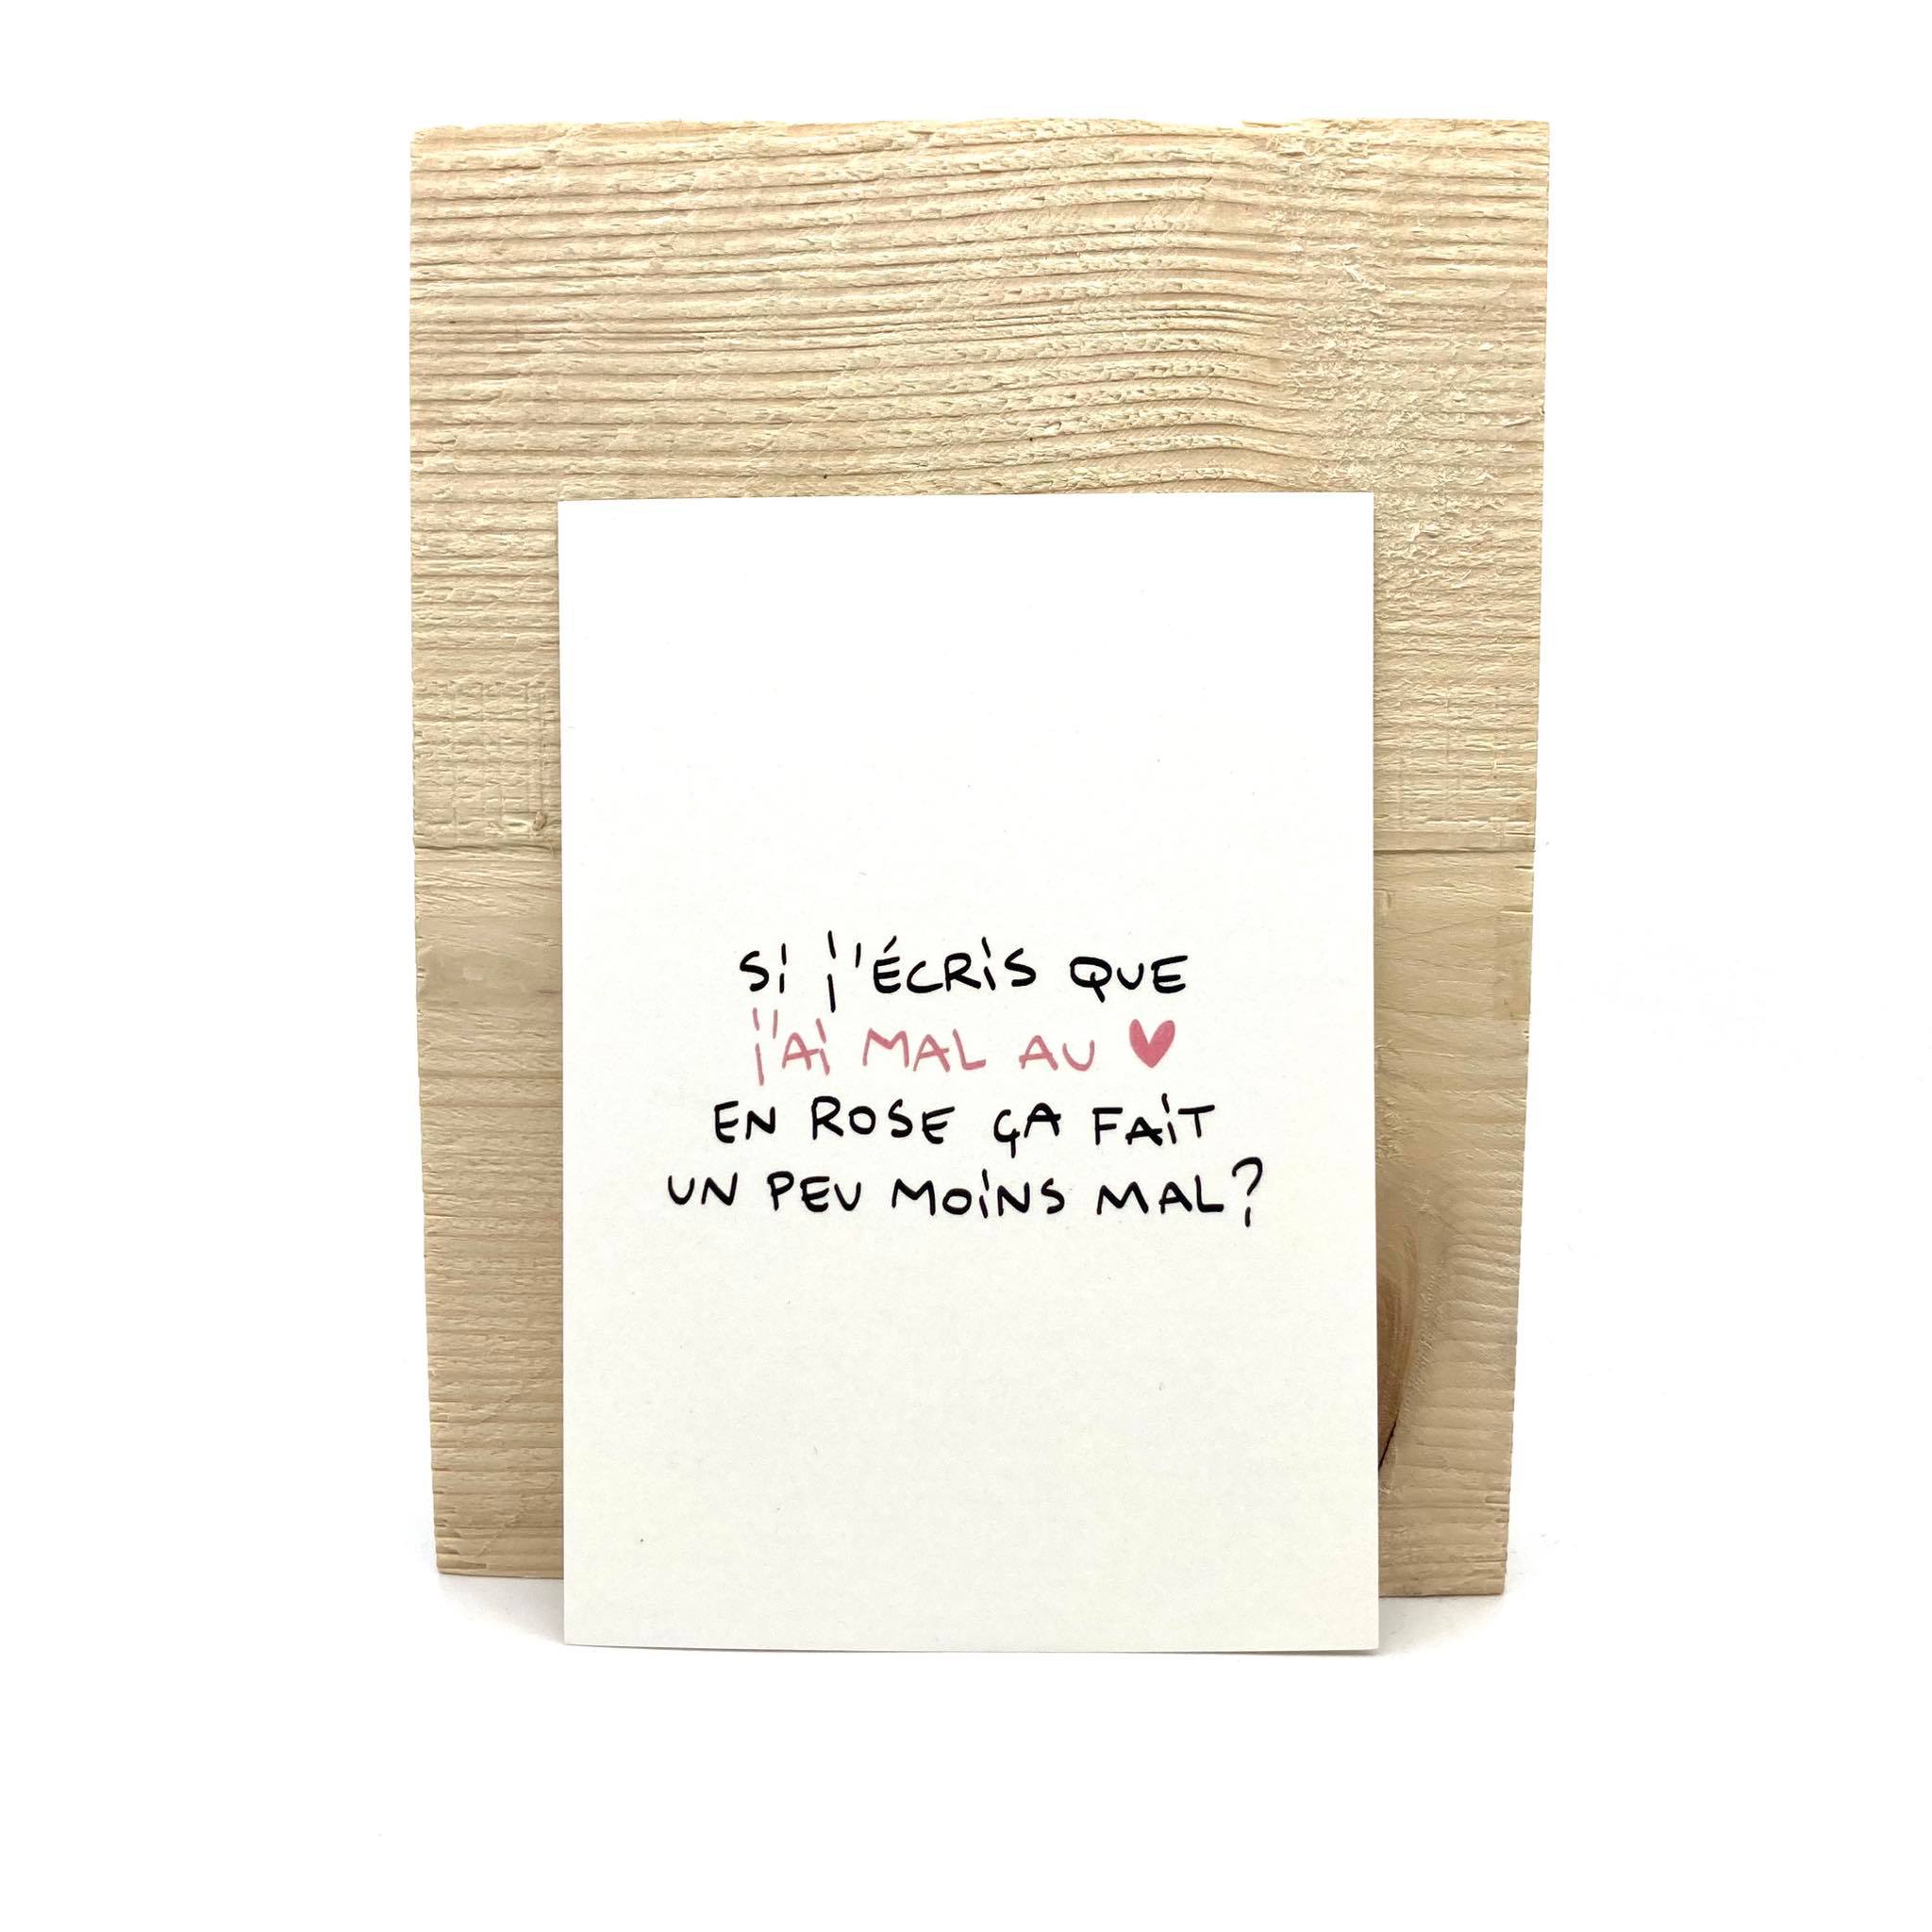 Si j'ÉCRiS QUE
j'Ai MAL AU ♥
EN ROSE ÇA FAiT
UN PEU MOiNS MAL?